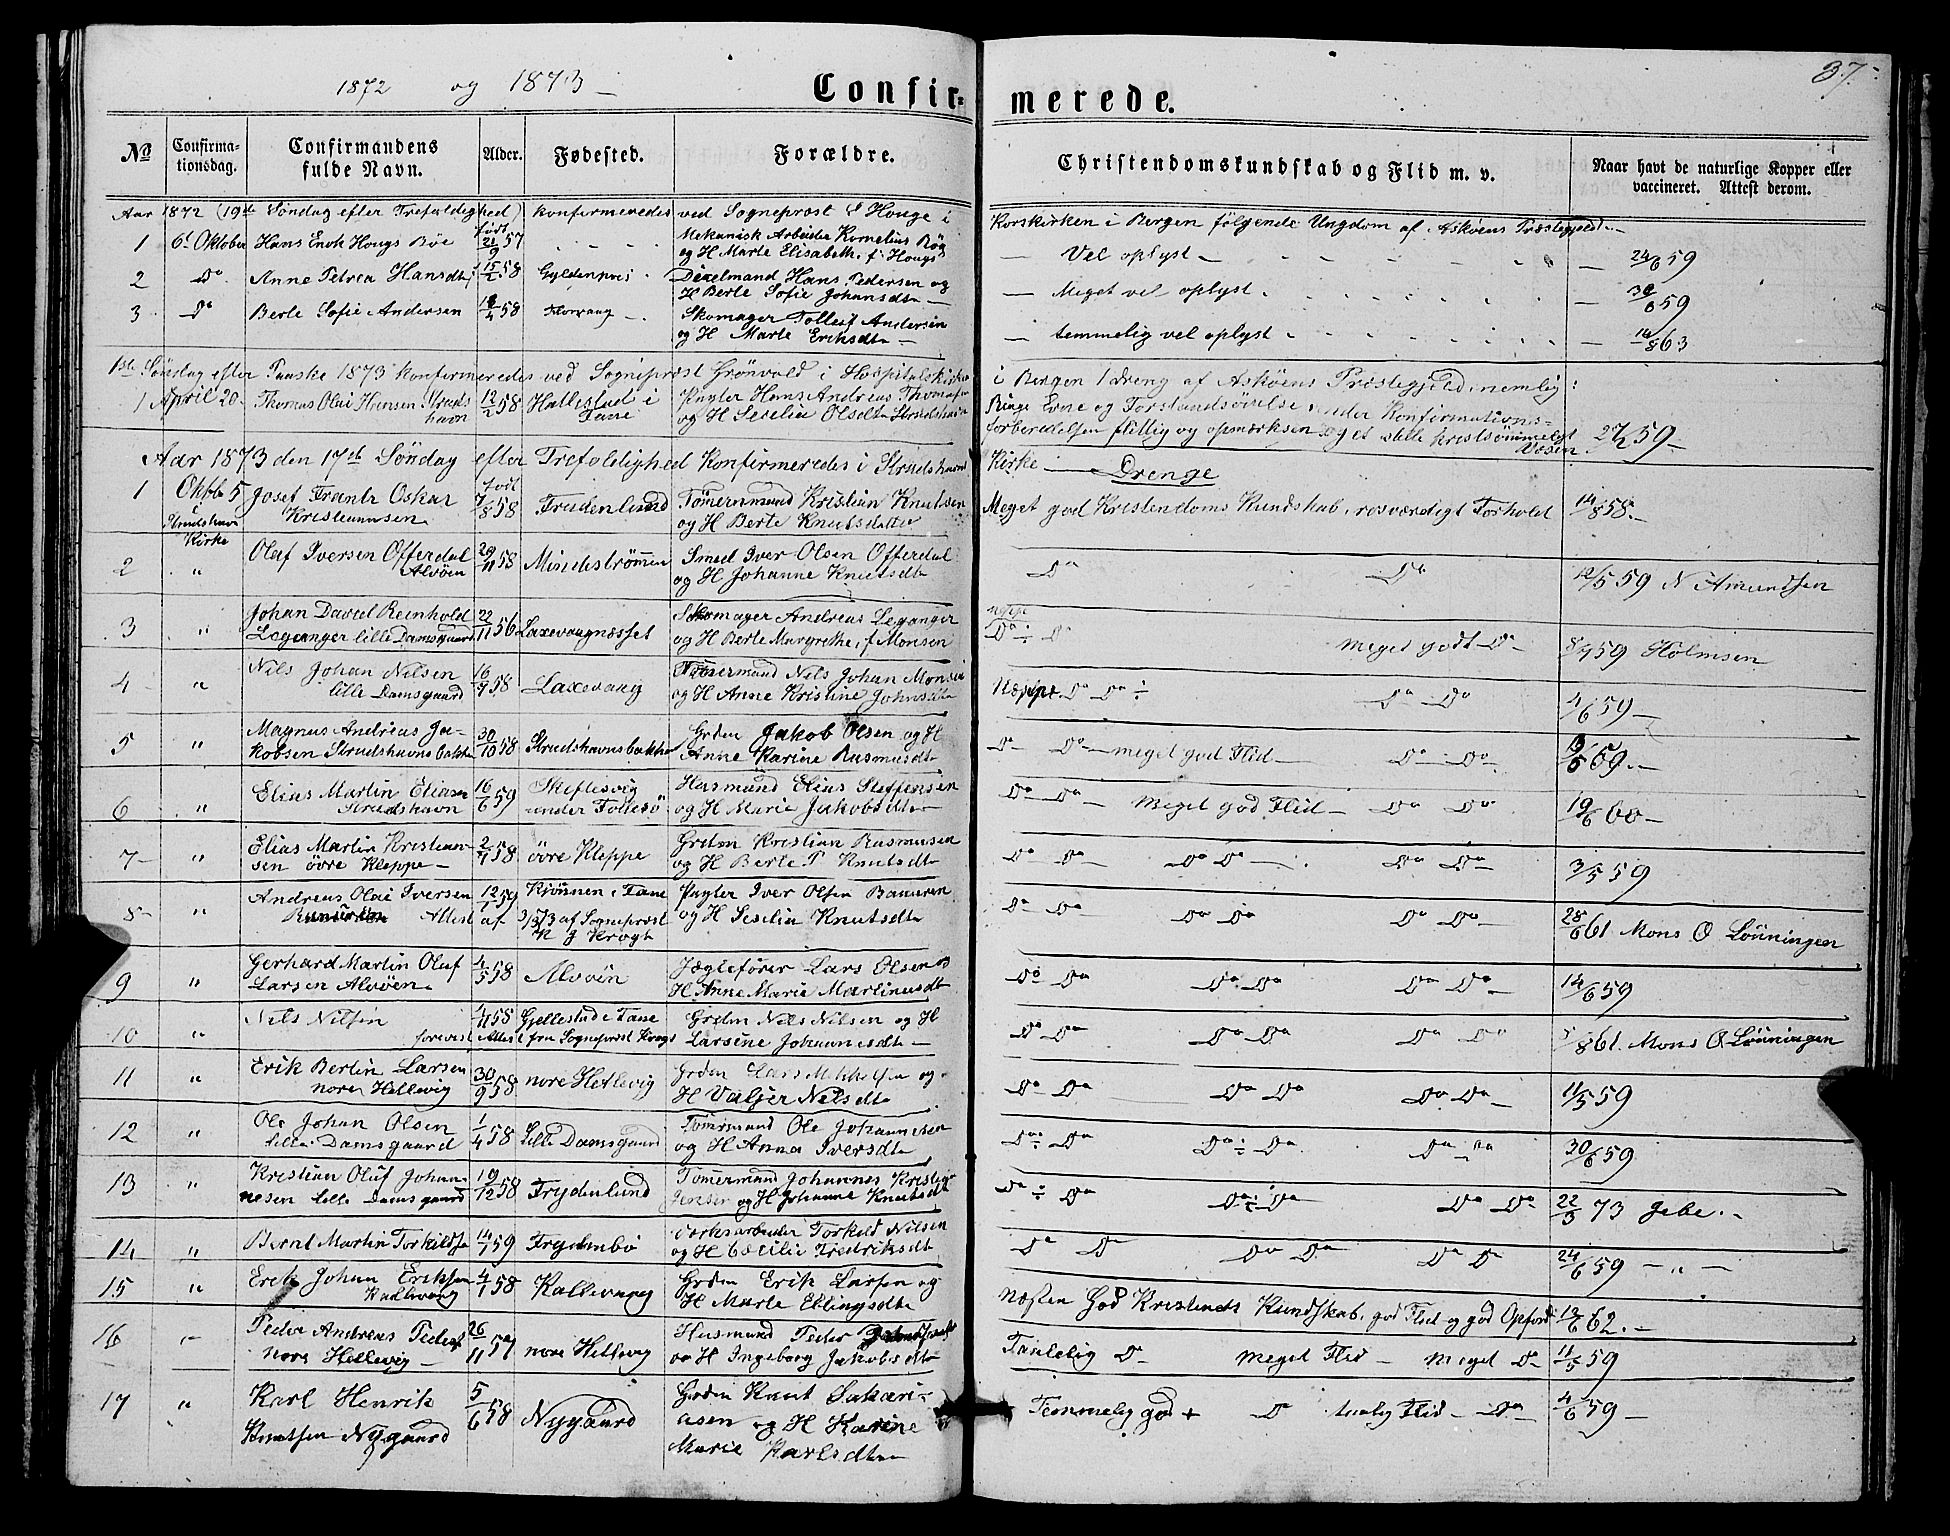 1872 og 1873 —
37.
Confirmerede.
No
Confirmationsdag.
Confirmandens fulde Navn.
Alder.
Fødested.
Forældre.
Christendomskundskab og Flid m. v.
Naar havt de naturlige Kopper eller vaccineret. Attest derom.
Aar 1872 (19de Søndag efter Trefoldighed) konfirmeredes ved Sogneprost Houge i Korskirken i Bergen følgende Ungdom af Askøens Præstegjeld.
1 6te Oktober Hans Enok Hougs Böe født 21/9 57 Mekanisk Arbeider Kornelius Böe
og H Marte Elisabeth f. Hougs — Vel oplyst — 24/6 59
2 Do Anne Petrea Hansdtr 15/2 58 Gyldenpris Hans Pedersen og
H Berte Sofie Johansdtr — Meget vel oplyst 59
3 Do Berte Sofie Andersen 58 Skomager Tollef Andersen
og H Marte Eriksdtr — temmelig vel oplyst 14/8 63
1ste Søndag efter Paaske 1873 konfirmeredes ved Sogneprest Grönvold i Hospitalskirken
i Bergen 1 dreng af Asköens Præstegjeld, nemlig:
1 April 20. Thomas Olai Hansen Strudshavn 12/2 58 Hallestad i Fane Pagter Hans Andreas Thomasen
og H Seselia Olsdtr Strudshavn
Ringe Evne og Forstandsøvelse under Konfirmations-
forberedelsen flittig og opmærksom og et stille kristsømmeligt Væsen 59 —
Aar 1873 den 17de Söndag efter Trefoldighed Konfirmeredes i Strudshavn Kirke — Drenge
1 Oktb 5 i Strudshavn Kirke Josef Frants Oskar
Kristiansen født 7/8 58 Frydenlund Tömermand Kristian Knutsen
og H Berte Knutsdatter Meget god Kristendoms Kundskab, rosværdigt Forhold 14/8 58 —
2 " Olaf Iversen Offerdal
Alvöen 29/11 58 Mindeströmmen Smed Iver Olsen Offerdal
og H Johanne Knutsdtr Do Do 12/5 59 N Amundsen
3 " Johan David Reinhold
Leganger lille Damsgaard 22/11 56 Laxevaagnæsset Skomager Andreas Leganger
og H Berte Margrethe, f Monsen Do Do meget godt Do 59 Holmsen
4 " Nils Johan Nilsen
lille Damsgaard 16/9 58 Laxevaag Tömermand Nils Johan Monsen
og H Anne Kristine Johnsdtr Neppe Do Do Do Do 4/6 59 —
5 " Magnus Andreas Ja-
kobsen Strudshavnsbakke 30/10 58 Strudshavnsbakke Grdm Jakob Olsen og H
Anne Karine Rasmusdtr Do Do — meget god Flid — Do Do
6 " Elias Martin Eliasen
Strudshavn 16/6 59 Skiftesvig
under Follesö Husmand Elias Steffensen
og H Marie Jakobsdtr Do Do — meget god Flid — Do Do 19/6 60 —
7 " Elias Martin Kristian-
sen övre Kleppe — 2/7 58 övre Kleppe Grdm Kristian Rasmusen
og H Berte P Knutsdtr Do Do Do Do Do Do 3/5 59
8 " Andreas Olai Iversen
Attest af 12/1 59 i Fane
3/2 73 af Sogneprest
K J Krogh Pagter Iver Olsen
og H Seselia Knutsdtr Do Do Do Do Do Do 28/6 61 Mons O Lönningen
9 " Gerhard Martin Oluf
Larsen Alvöen 4/5 58 Alvöen Jægtefører Lars Olsen og
H Anne Marie Martinusdtr Do Do Do Do Do Do 14/6 59
10 " Nils Nilsen
forevist Attest fra Sogneprest Krogh 4/11 58 Gjellestad i Fane Grdm Nils Nilsen og H
Larsine Johannesdtr — Do Do Do Do Do Do 61. Mons O Lönningen
11 " Erik Bertin Larsen
nore Hetlevig 30/9 58 nore Hetlevig Grdm Lars Mikkelsen og
H Valjer Nilsdtr Do Do Do Do Do Do 11/5 59
12 " Ole Johan Olsen
lille Damsgaard 1/4 58 Lille Damsgaard Tömrmand Ole Johannesen
og H Anna Iversdtr Do Do Do Do Do Do 30/6 59
13 " Kristian Oluf Johan-
nesen lille Damsgaard 19/12 58 Frydenlund Tömermand Johannes Kristi-
ansen og H Johanne Knutsdtr Do Do Do Do Do Do 22/3 73 Jebe.
14 " Bernt Martin Torkildsen 14/1 59 Frydenbö Verksarbeider Torkild Nilsen
og H Cecilie Fredriksdtr Do Do Do Do Do Do 24/6 59 — " —
15 " Erik Johan Eriksen
Kallevaag 4/1 58 Kallevaag Grdm Erik Larsen og
H Marte Ellingsdtr Næsten God Kristends Kundskab, god Flid og god Opførsel 62. —
16 " Peder Andreas Peders
nore Hetlevig — 26/11 57 nore Hetlevig Husmand Peder
og H Ingeborg Jakobsdtr Taalelig Do Meget Flid — Meget Do 11/5 59
17 " Karl Henrik
Knutsen Nygaard 5/6 58 Nygaard Grdm Knut Sakari-
asen og H Karine
Marie Karlsdtr Temmelig god + Do taalig Flid — Do 4/6 59 —